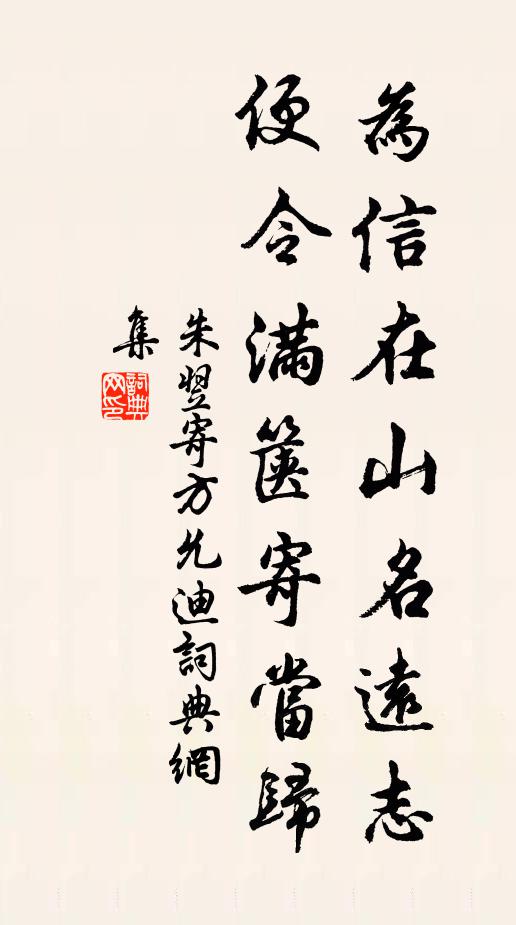 為信在山名遠志
便令滿篋寄當歸
朱翌寄方允迪詞典網
集
詞典
网印